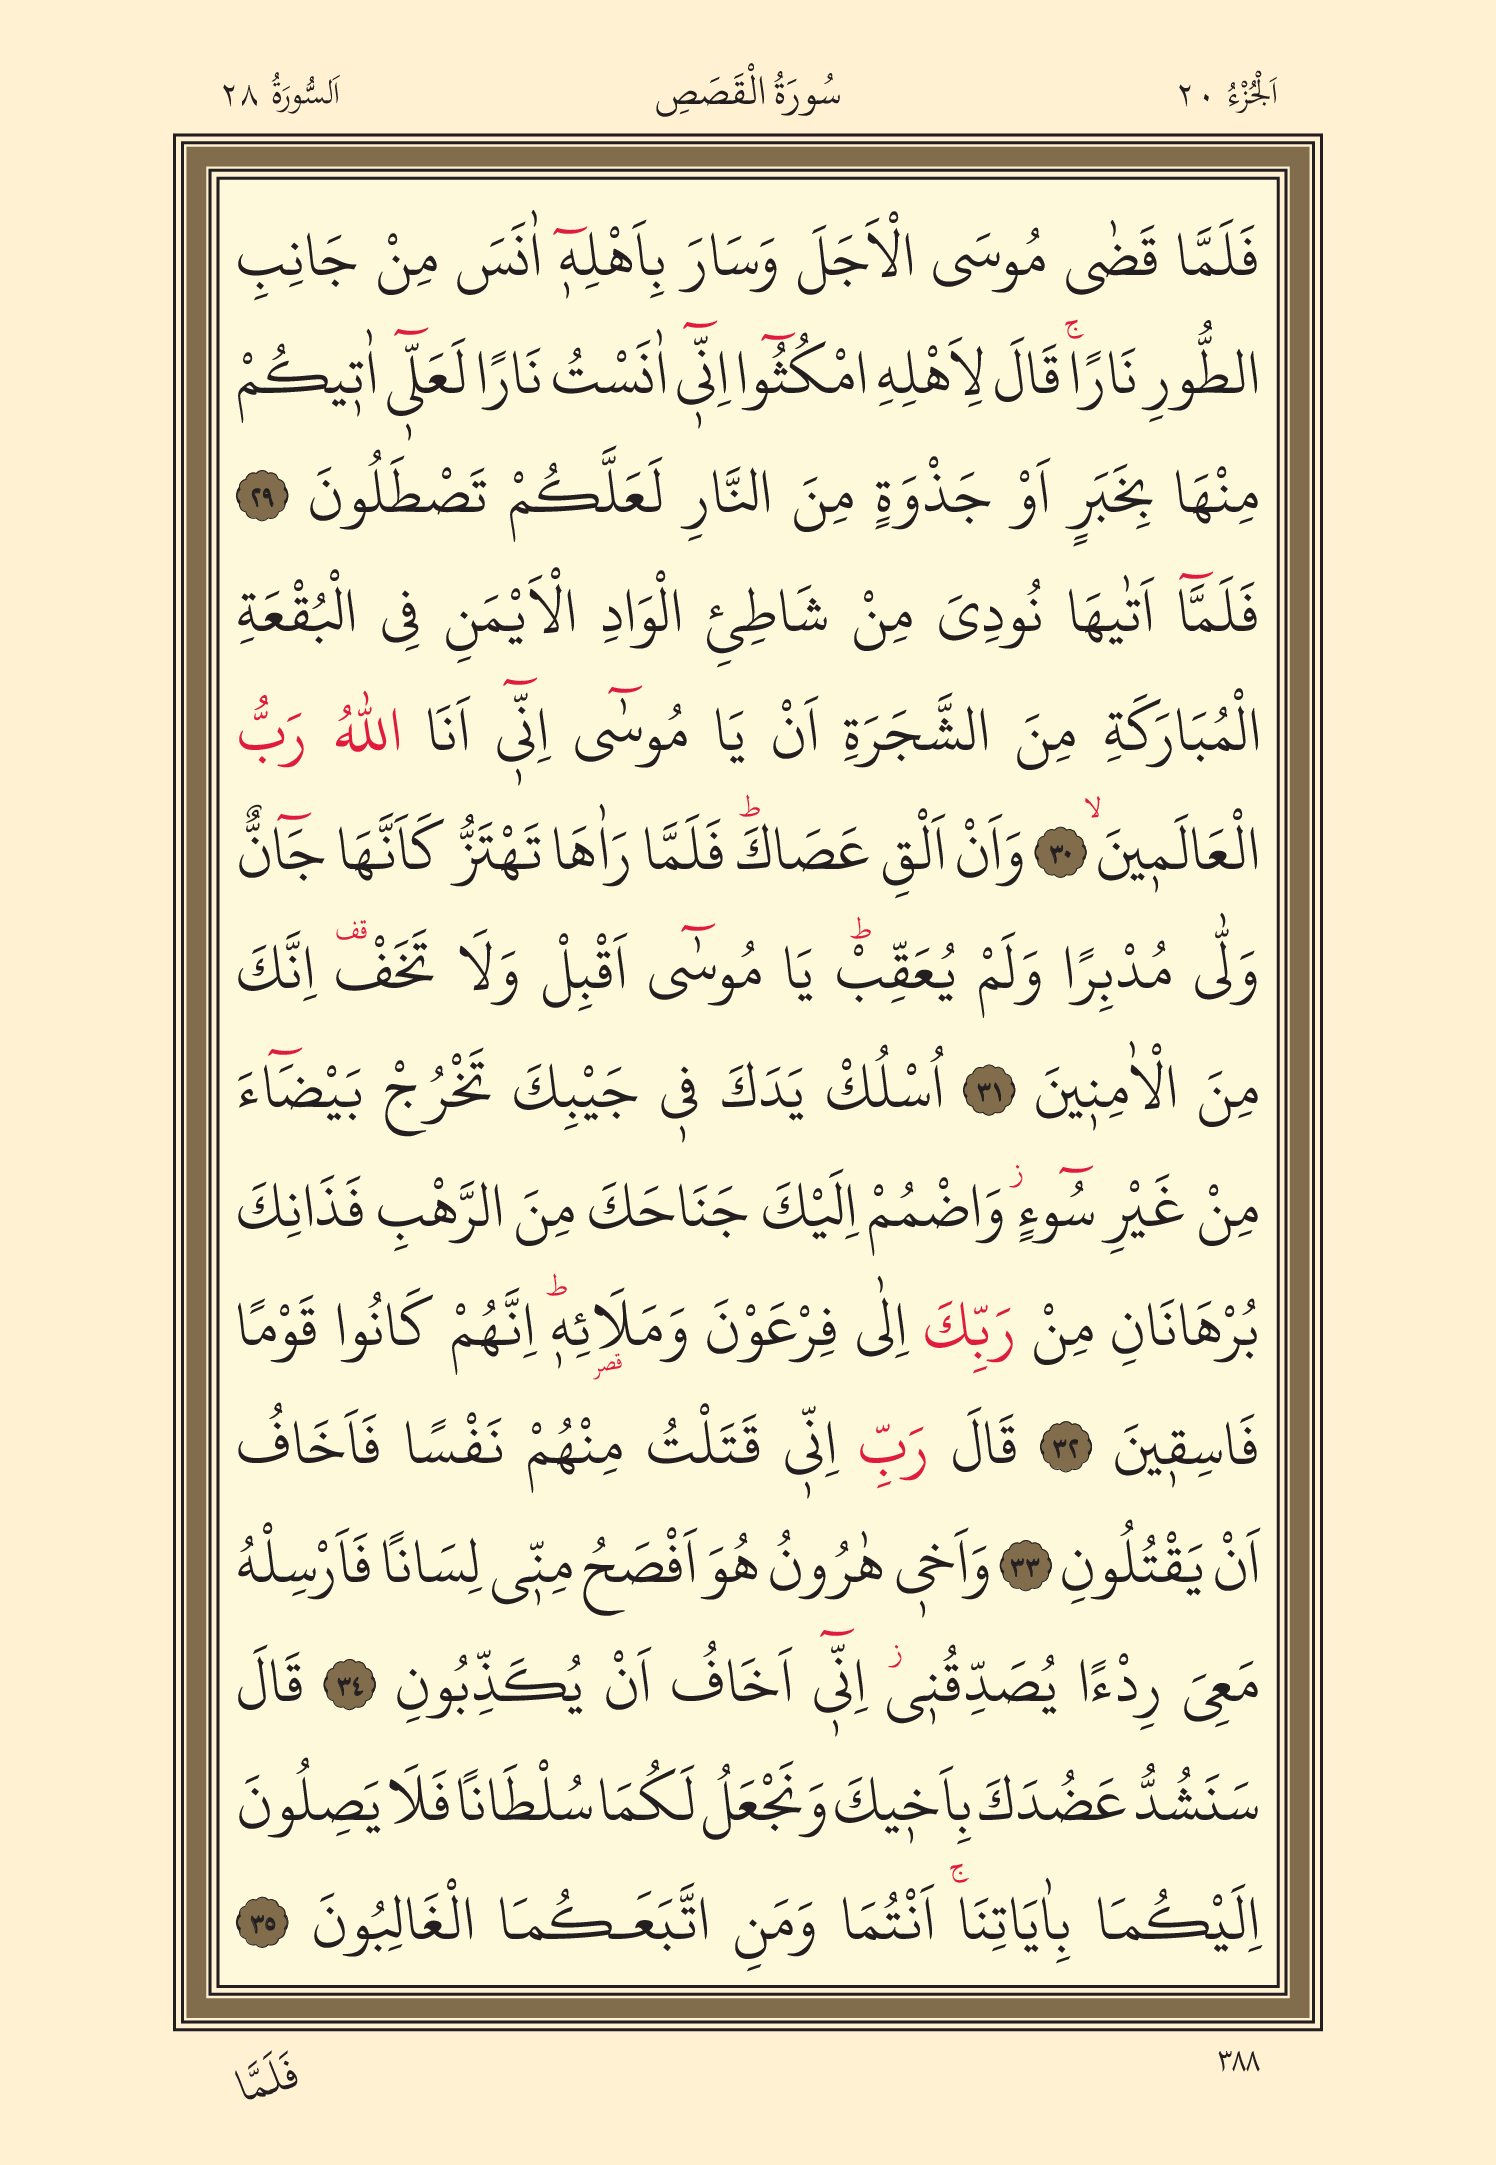 اَلْجُزْءُ ٢٠
سُورَةُ الْقَصَصِ
اَلسُّورَةُ ٢٨
فَلَمَّا قَضٰى مُوسَى الْاَجَلَ وَسَارَ بِاَهْلِه۪ٓ اٰنَسَ مِنْ جَانِبِ
الطُّورِ نَارًاۚ قَالَ لِاَهْلِهِ امْكُثُٓوا اِنّ۪ٓي اٰنَسْتُ نَارًا لَعَلّ۪ٓي اٰت۪يكُمْ
مِنْهَا بِخَبَرٍ اَوْ جَذْوَةٍ مِنَ النَّارِ لَعَلَّكُمْ تَصْطَلُونَ ﴿٢٩﴾
فَلَمَّٓا اَتٰيهَا نُودِىَ مِنْ شَاطِئِ الْوَادِ الْاَيْمَنِ فِى الْبُقْعَةِ
الْمُبَارَكَةِ مِنَ الشَّجَرَةِ اَنْ يَا مُوسٰٓى اِنّ۪ٓي اَنَا اللّٰهُ رَبُّ
الْعَالَم۪ينَۙ ﴿٣٠﴾ وَاَنْ اَلْقِ عَصَاكَۜ فَلَمَّا رَاٰهَا تَهْتَزُّ كَاَنَّهَا جَٓانٌّ
وَلّٰى مُدْبِرًا وَلَمْ يُعَقِّبْۜ يَا مُوسٰٓى اَقْبِلْ وَلَا تَخَفْ۠ قف اِنَّكَ
مِنَ الْاٰمِن۪ينَ ﴿٣١﴾ اُسْلُكْ يَدَكَ ف۪ي جَيْبِكَ تَخْرُجْ بَيْضَٓاءَ
مِنْ غَيْرِ سُٓوءٍۘ وَاضْمُمْ اِلَيْكَ جَنَاحَكَ مِنَ الرَّهْبِ فَذَانِكَ
بُرْهَانَانِ مِنْ رَبِّكَ اِلٰى فِرْعَوْنَ وَمَلَائِه۪ۜ قصر اِنَّهُمْ كَانُوا قَوْمًا
فَاسِق۪ينَ ﴿٣٢﴾ قَالَ رَبِّ اِنّ۪ي قَتَلْتُ مِنْهُمْ نَفْسًا فَاَخَافُ
اَنْ يَقْتُلُونِ ﴿٣٣﴾ وَاَخ۪ي هٰرُونُ هُوَ اَفْصَحُ مِنّ۪ي لِسَانًا فَاَرْسِلْهُ
مَعِىَ رِدْءًا يُصَدِّقُن۪يۘ اِنّ۪ٓي اَخَافُ اَنْ يُكَذِّبُونِ ﴿٣٤﴾ قَالَ
سَنَشُدُّ عَضُدَكَ بِاَخ۪يكَ وَنَجْعَلُ لَكُمَا سُلْطَانًا فَلَا يَصِلُونَ
اِلَيْكُمَا بِاٰيَاتِنَاۚ اَنْتُمَا وَمَنِ اتَّبَعَكُمَا الْغَالِبُونَ ﴿٣٥﴾
٣٨٨
فَلَمَّا